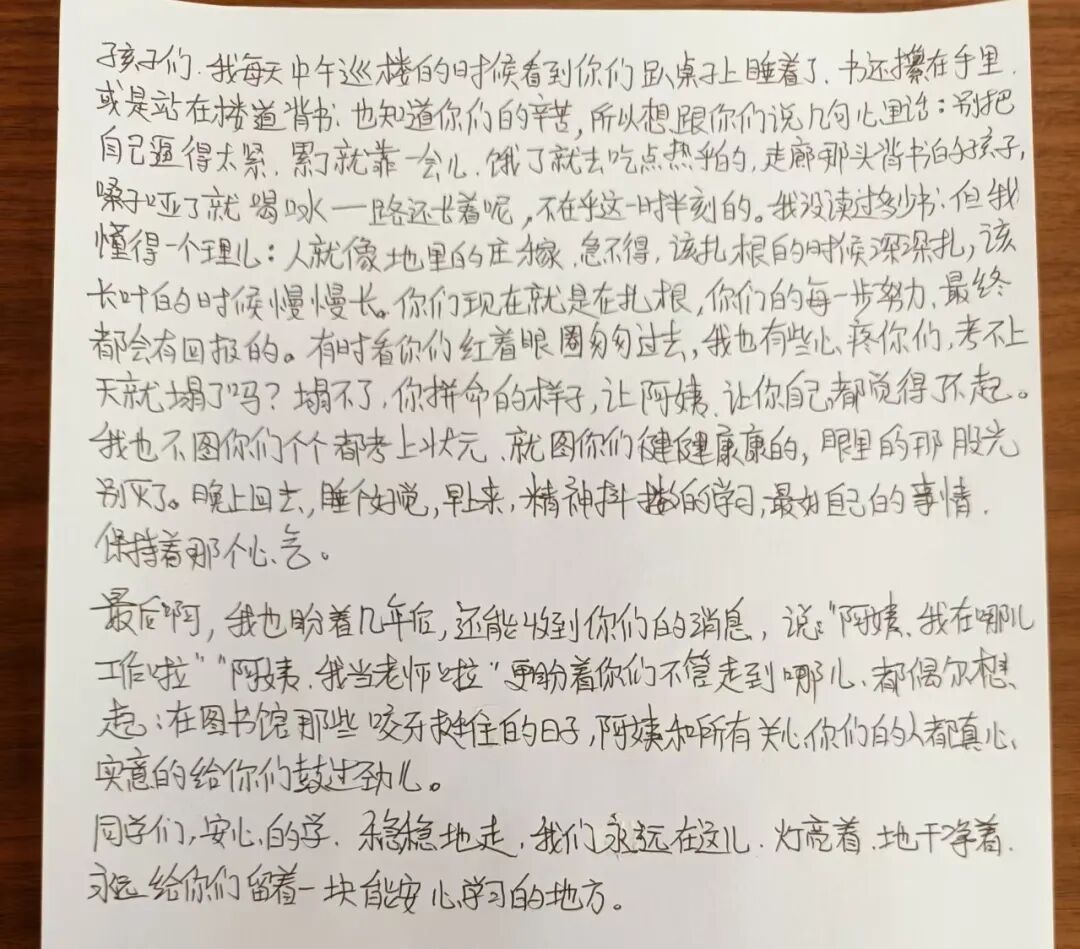 孩子们、我每天中午巡楼的时候看到你们趴桌子上睡着了、书还攥在手里、
或是站在楼道背书、也知道你们的辛苦，所以想跟你们说几句心里话：别把
自己逼得太紧、累了就靠一会儿、饿了就去吃点热乎的，走廊那头背书的好孩子，
嗓子哑了就喝口水—路还长着呢，不在乎这一时半刻的。我没读过多少书、但我
懂得一个理儿：人就像地里的庄稼、急不得，该扎根的时候深深扎，该
长叶的时候慢慢长。你们现在就是在扎根，你们的每一步努力、最终
都会有回报的。有时看你们红着眼圈匆匆过去，我也有些心疼你们，考不上
天就塌了吗？塌不了、你拼命的样子，让阿姨、让你自己都觉得了不起。
我也不图你们个个都考上状元、就图你们健健康康的，眼里的那股光
别灭了。晚上回去，睡个好觉，早上来，精神抖擞的学习，最好自己的事情、
保持着那个心气。
最后啊，我也盼着几年后，还能收到你们的消息，说："阿姨、我在哪儿
工作啦""阿姨、我当老师啦"更盼着你们不管走到哪儿、都偶尔想
起：在图书馆那些咬牙挺住的日子，阿姨和所有关心你们的人都真心
实意的给你们鼓过劲儿。
同学们，安心的学、稳稳地走，我们永远在这儿、灯亮着、地干净着、
永远给你们留着一块能安心学习的地方。